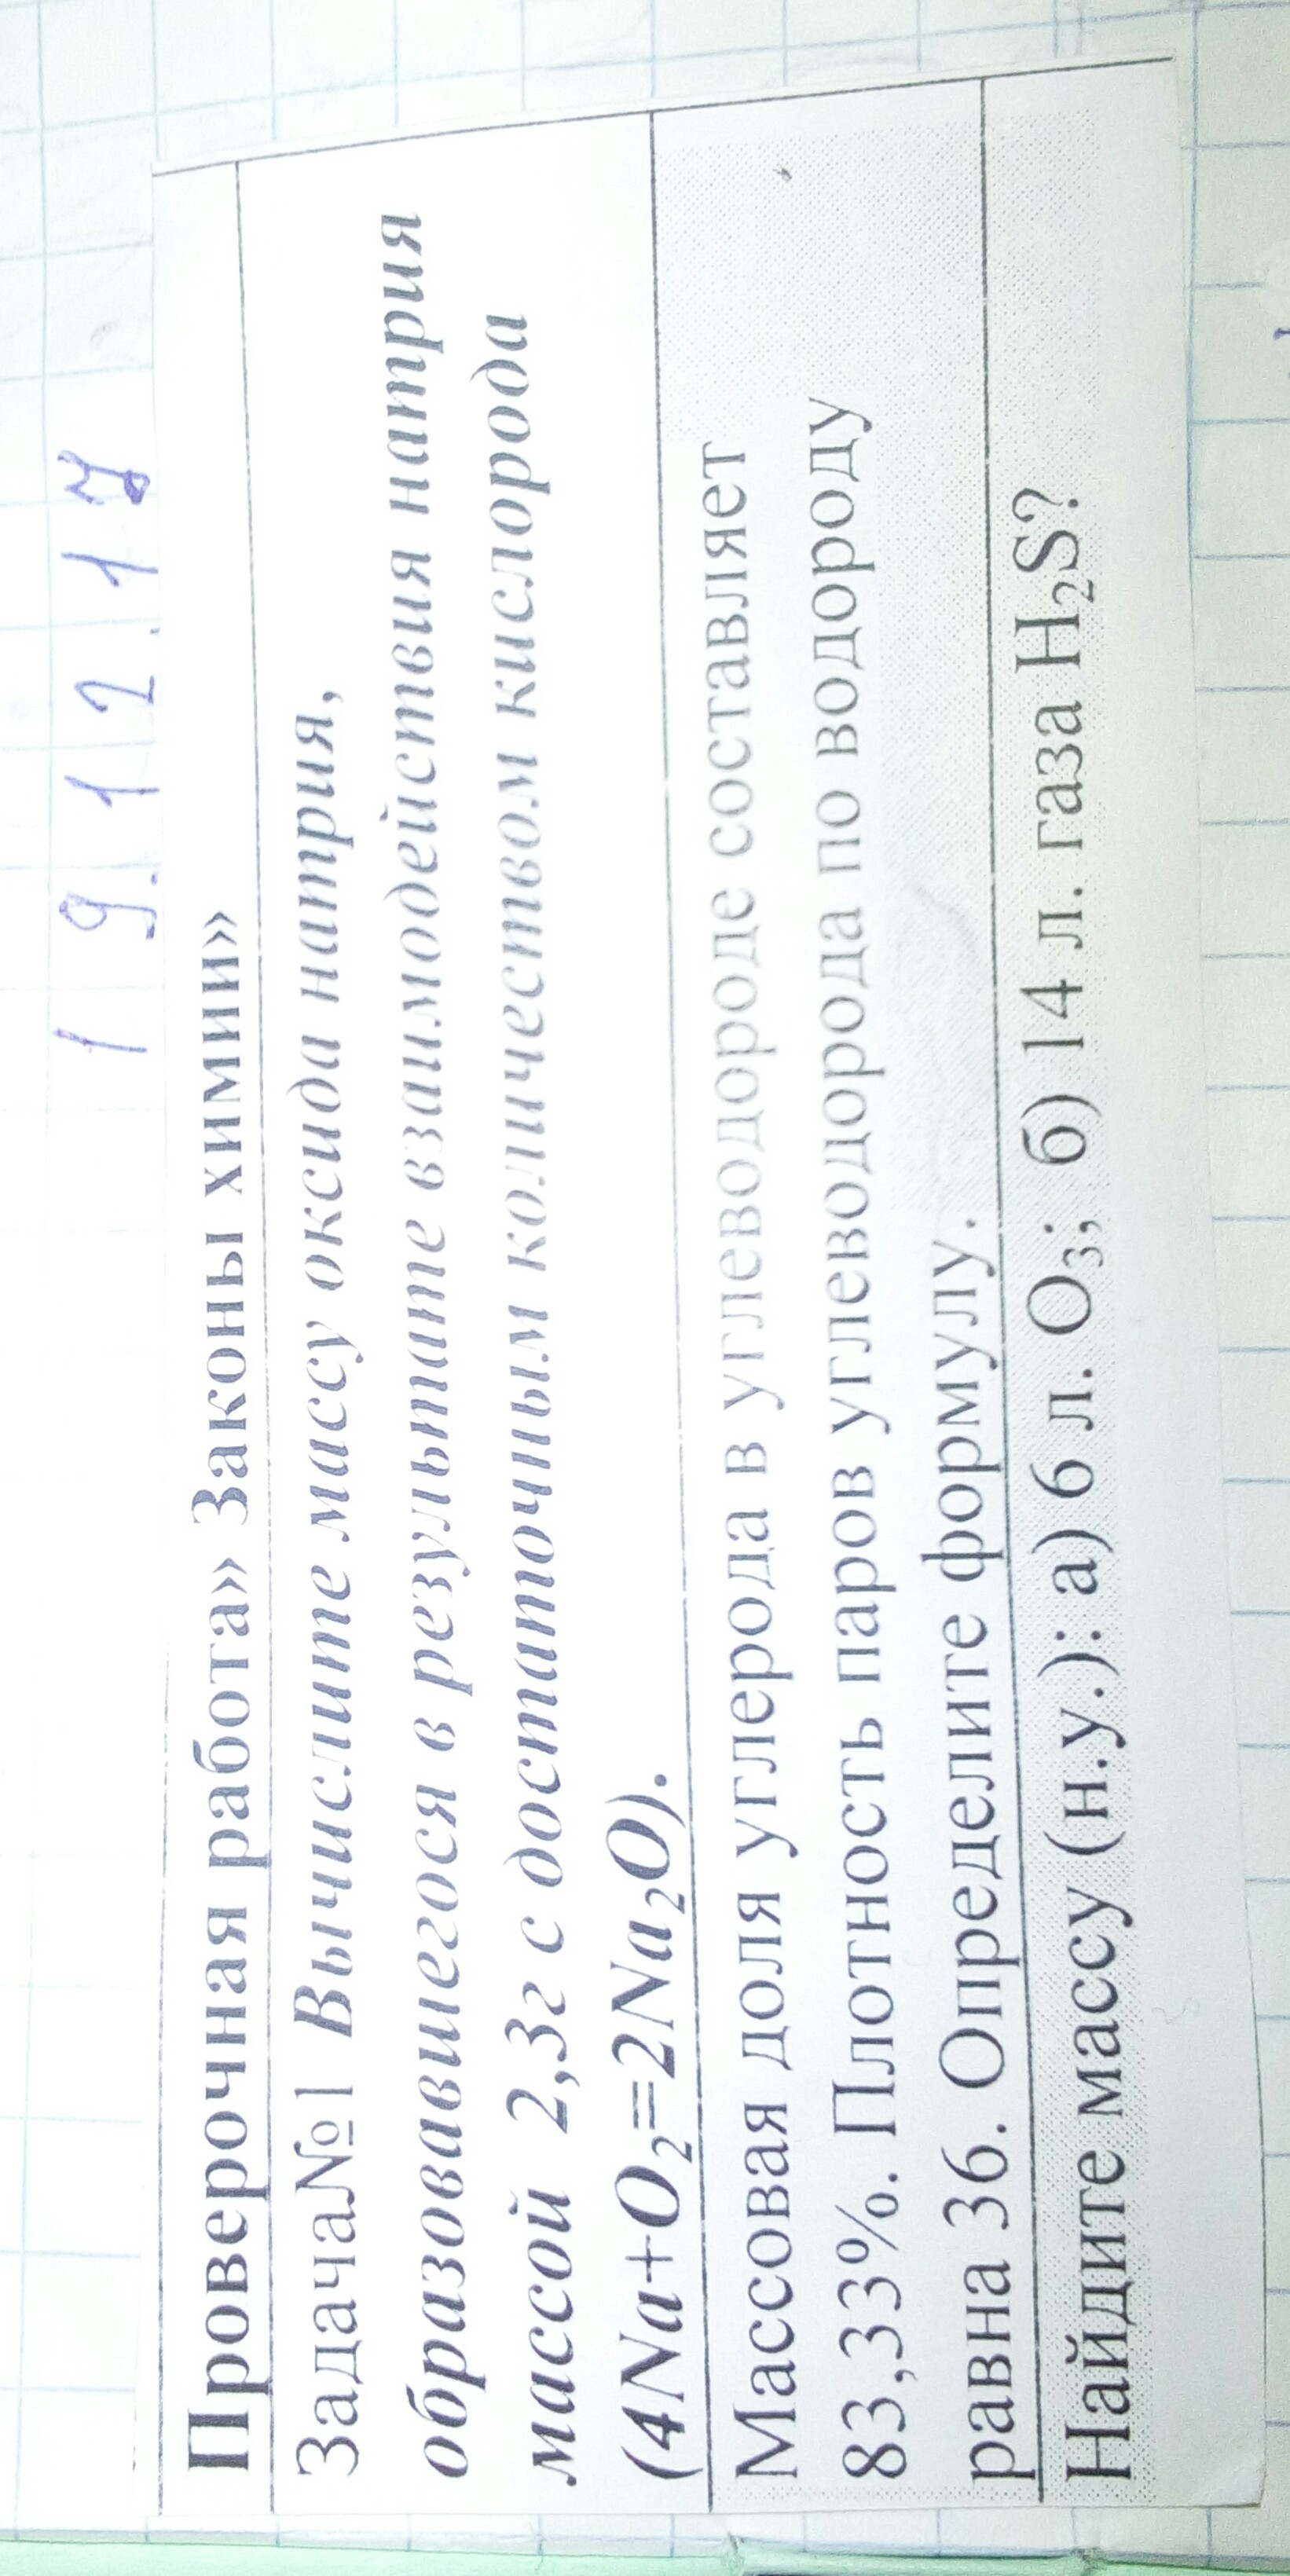 19.12.17
Проверочная работа» Законы химии»
Задача№1 Вычислите массу оксида натрия,
образовавшегося в результате взаимодействия натрия
массой 2,3г с достаточным количеством кислорода
(4Na+O₂=2Na₂O).
Массовая доля углерода в углеводороде составляет
83,33%. Плотность паров углеводорода по водороду
равна 36. Определите формулу.
Найдите массу (н.у.): а) 6 л. O₃; б) 14 л. газа H₂S?